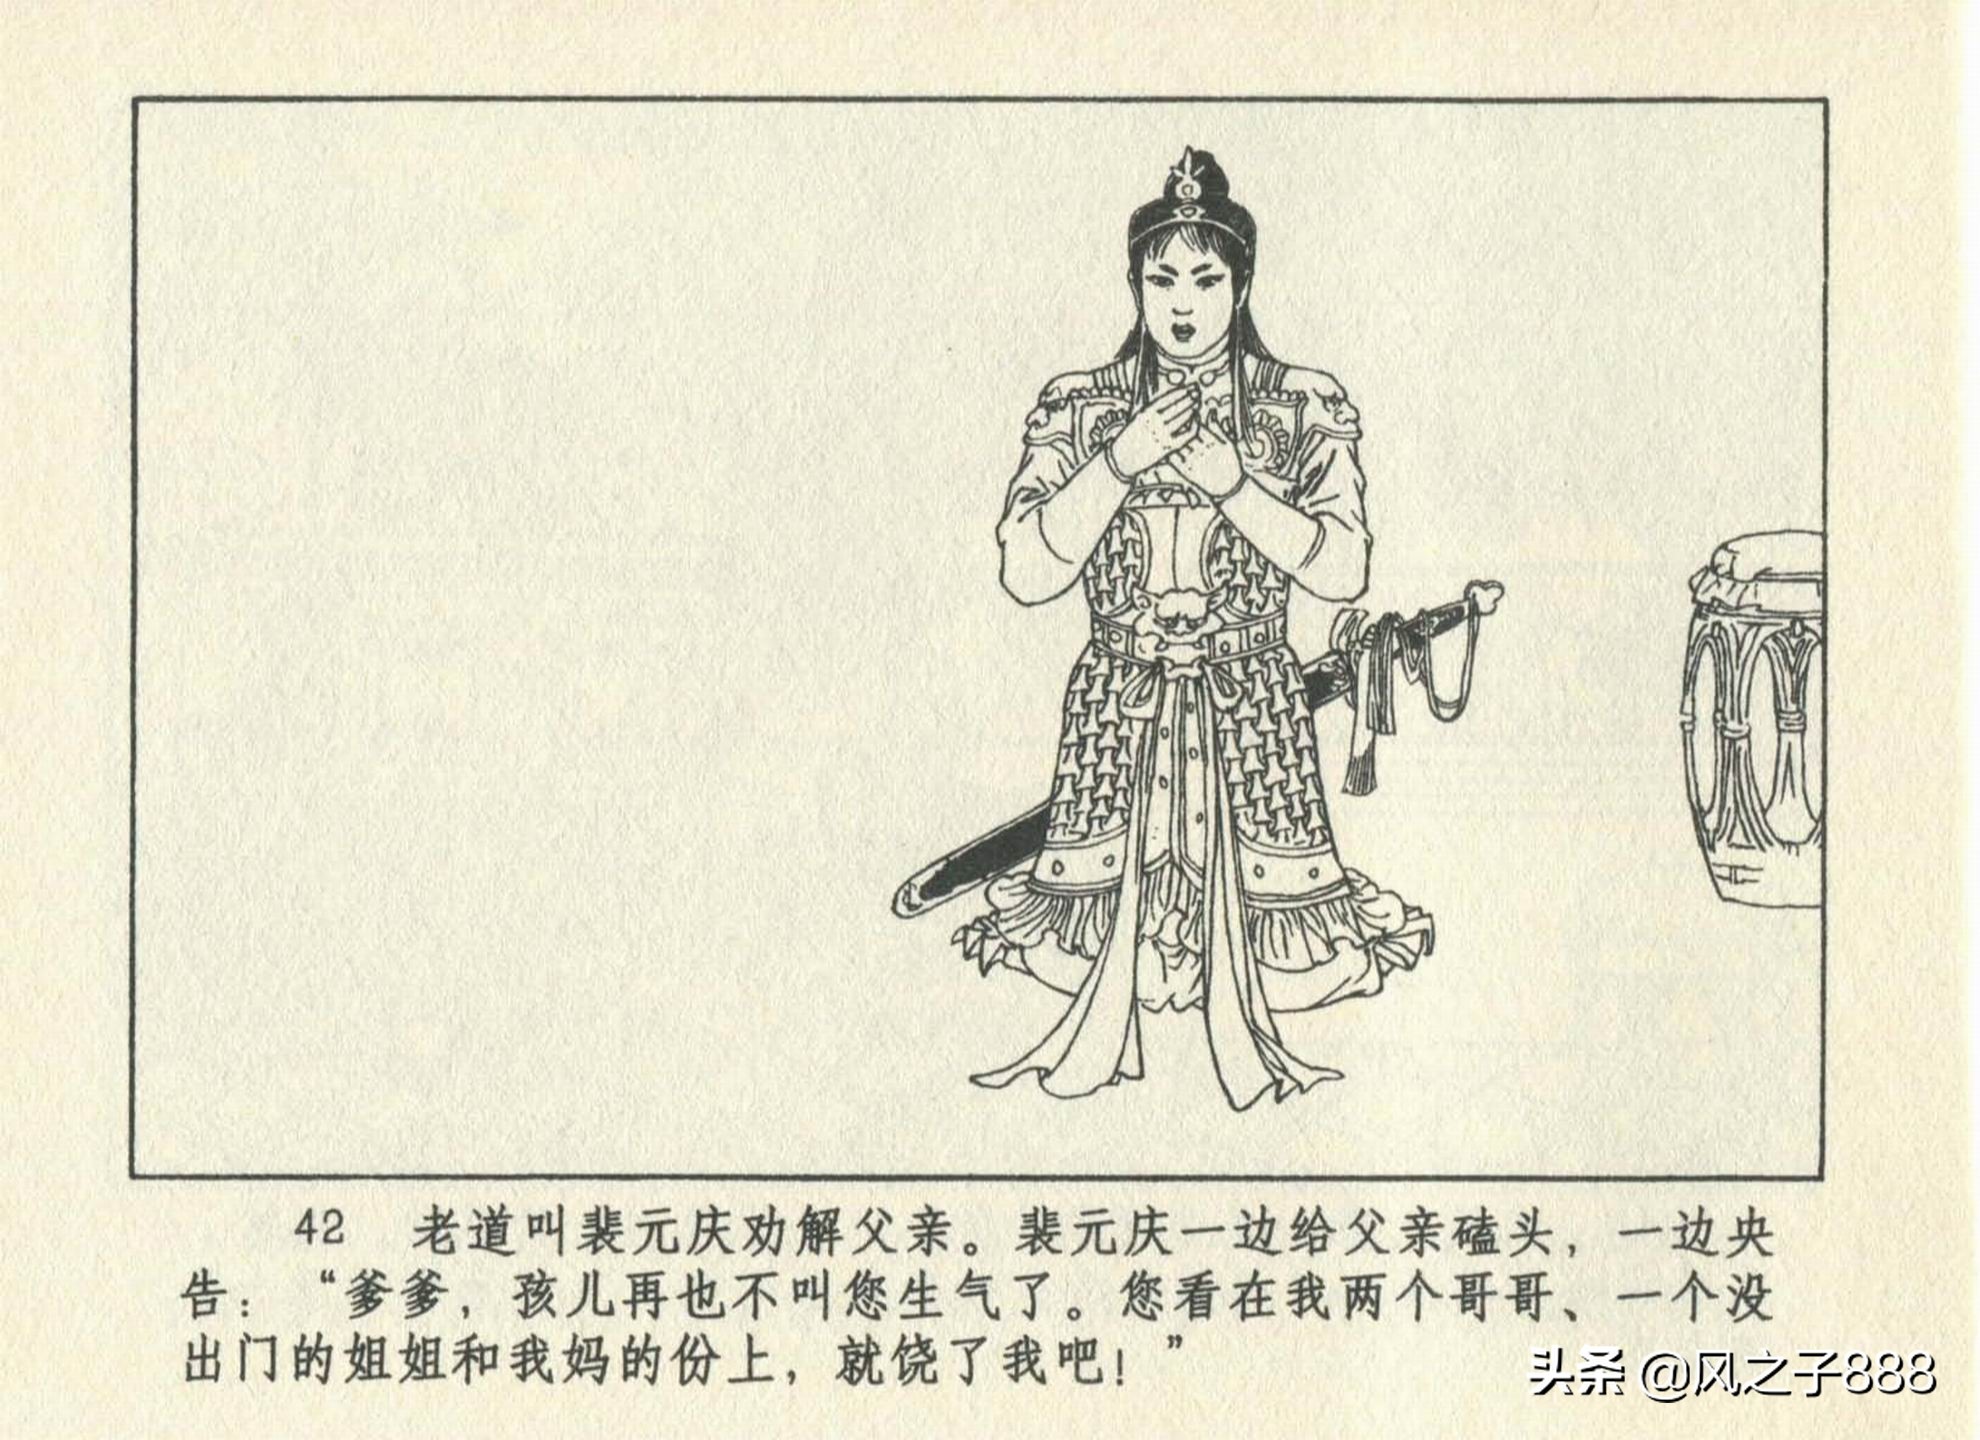 42 老道叫裴元庆劝解父亲。裴元庆一边给父亲磕头，一边央
告：“爹爹，孩儿再也不叫您生气了。您看在我两个哥哥、一个没
出门的姐姐和我妈的份上，就饶了我吧！”
头条 @风之子888